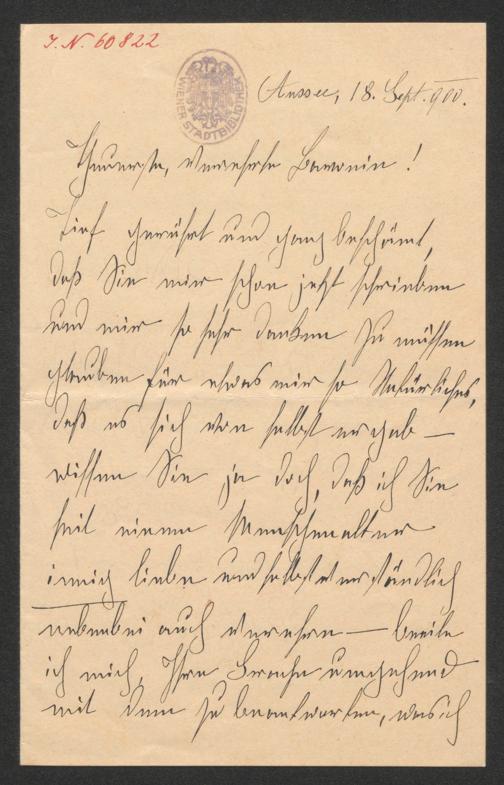 J. N. 60822
WIENER STADTBIBLIOTHEK
Aussee, 18. Sept. 900.
Theuerste, verehrte Baronin!
Tief gerührt und ganz beschämt,
daß Sie mir schon jetzt schrieben
und mir so sehr danken zu müssen
glauben für etwas mir so Natürliches,
daß es sich von selbst ergab —
wissen Sie ja doch, daß ich Sie
seit einem Menschenalter
innig liebe und selbstverständlich
nebenbei auch verehre — beeile
ich mich, Ihre umgehend
mit dem zu beantworten, was ich